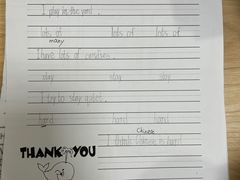 I play in the yard.
lots of lots of lots of
many
I have lots of candies.
stay stay stay
I try to stay quiet.
hard hard hard
Chinese
I think Chinese is hard!
THANK YOU